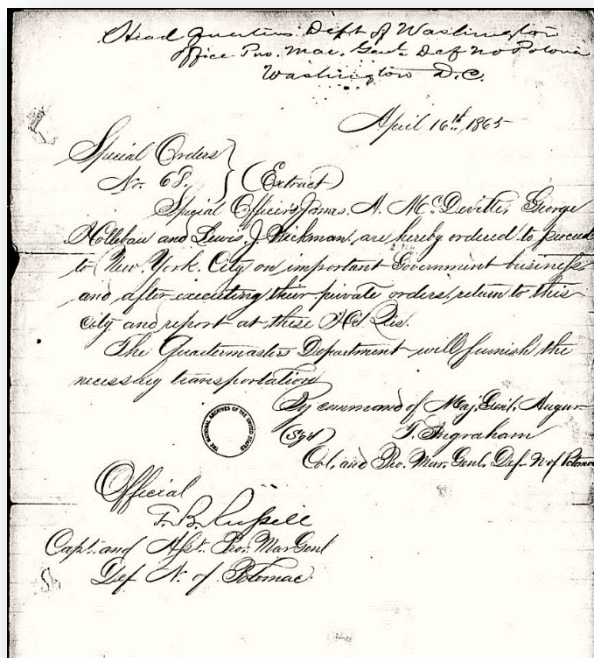 Head Quarters Dept of Washington
Office Pro. Mar. Genl. Def. No Potomac
Washington D.C.
April 16th, 1865
Special Orders
No. 68. } (Extract)
Special Officers James. A. McDevitt, George
Hollebau and Lewis. J. Kirkman, are hereby ordered to proceed
to New York. City on important Government business
and after executing their private orders, return to this
City and report at these Hd Qrs.
The Quartermasters Department will furnish the
necessary transportation
By command of Maj. Genl. Augur
(Sgd T. Ingraham
Col. and Pro. Mar. Genl. Def. N of Potomac
THE NATIONAL ARCHIVES OF THE UNITED STATES
Official
Capt. and Asst. Pro. Mar Genl
Def. N. of Potomac